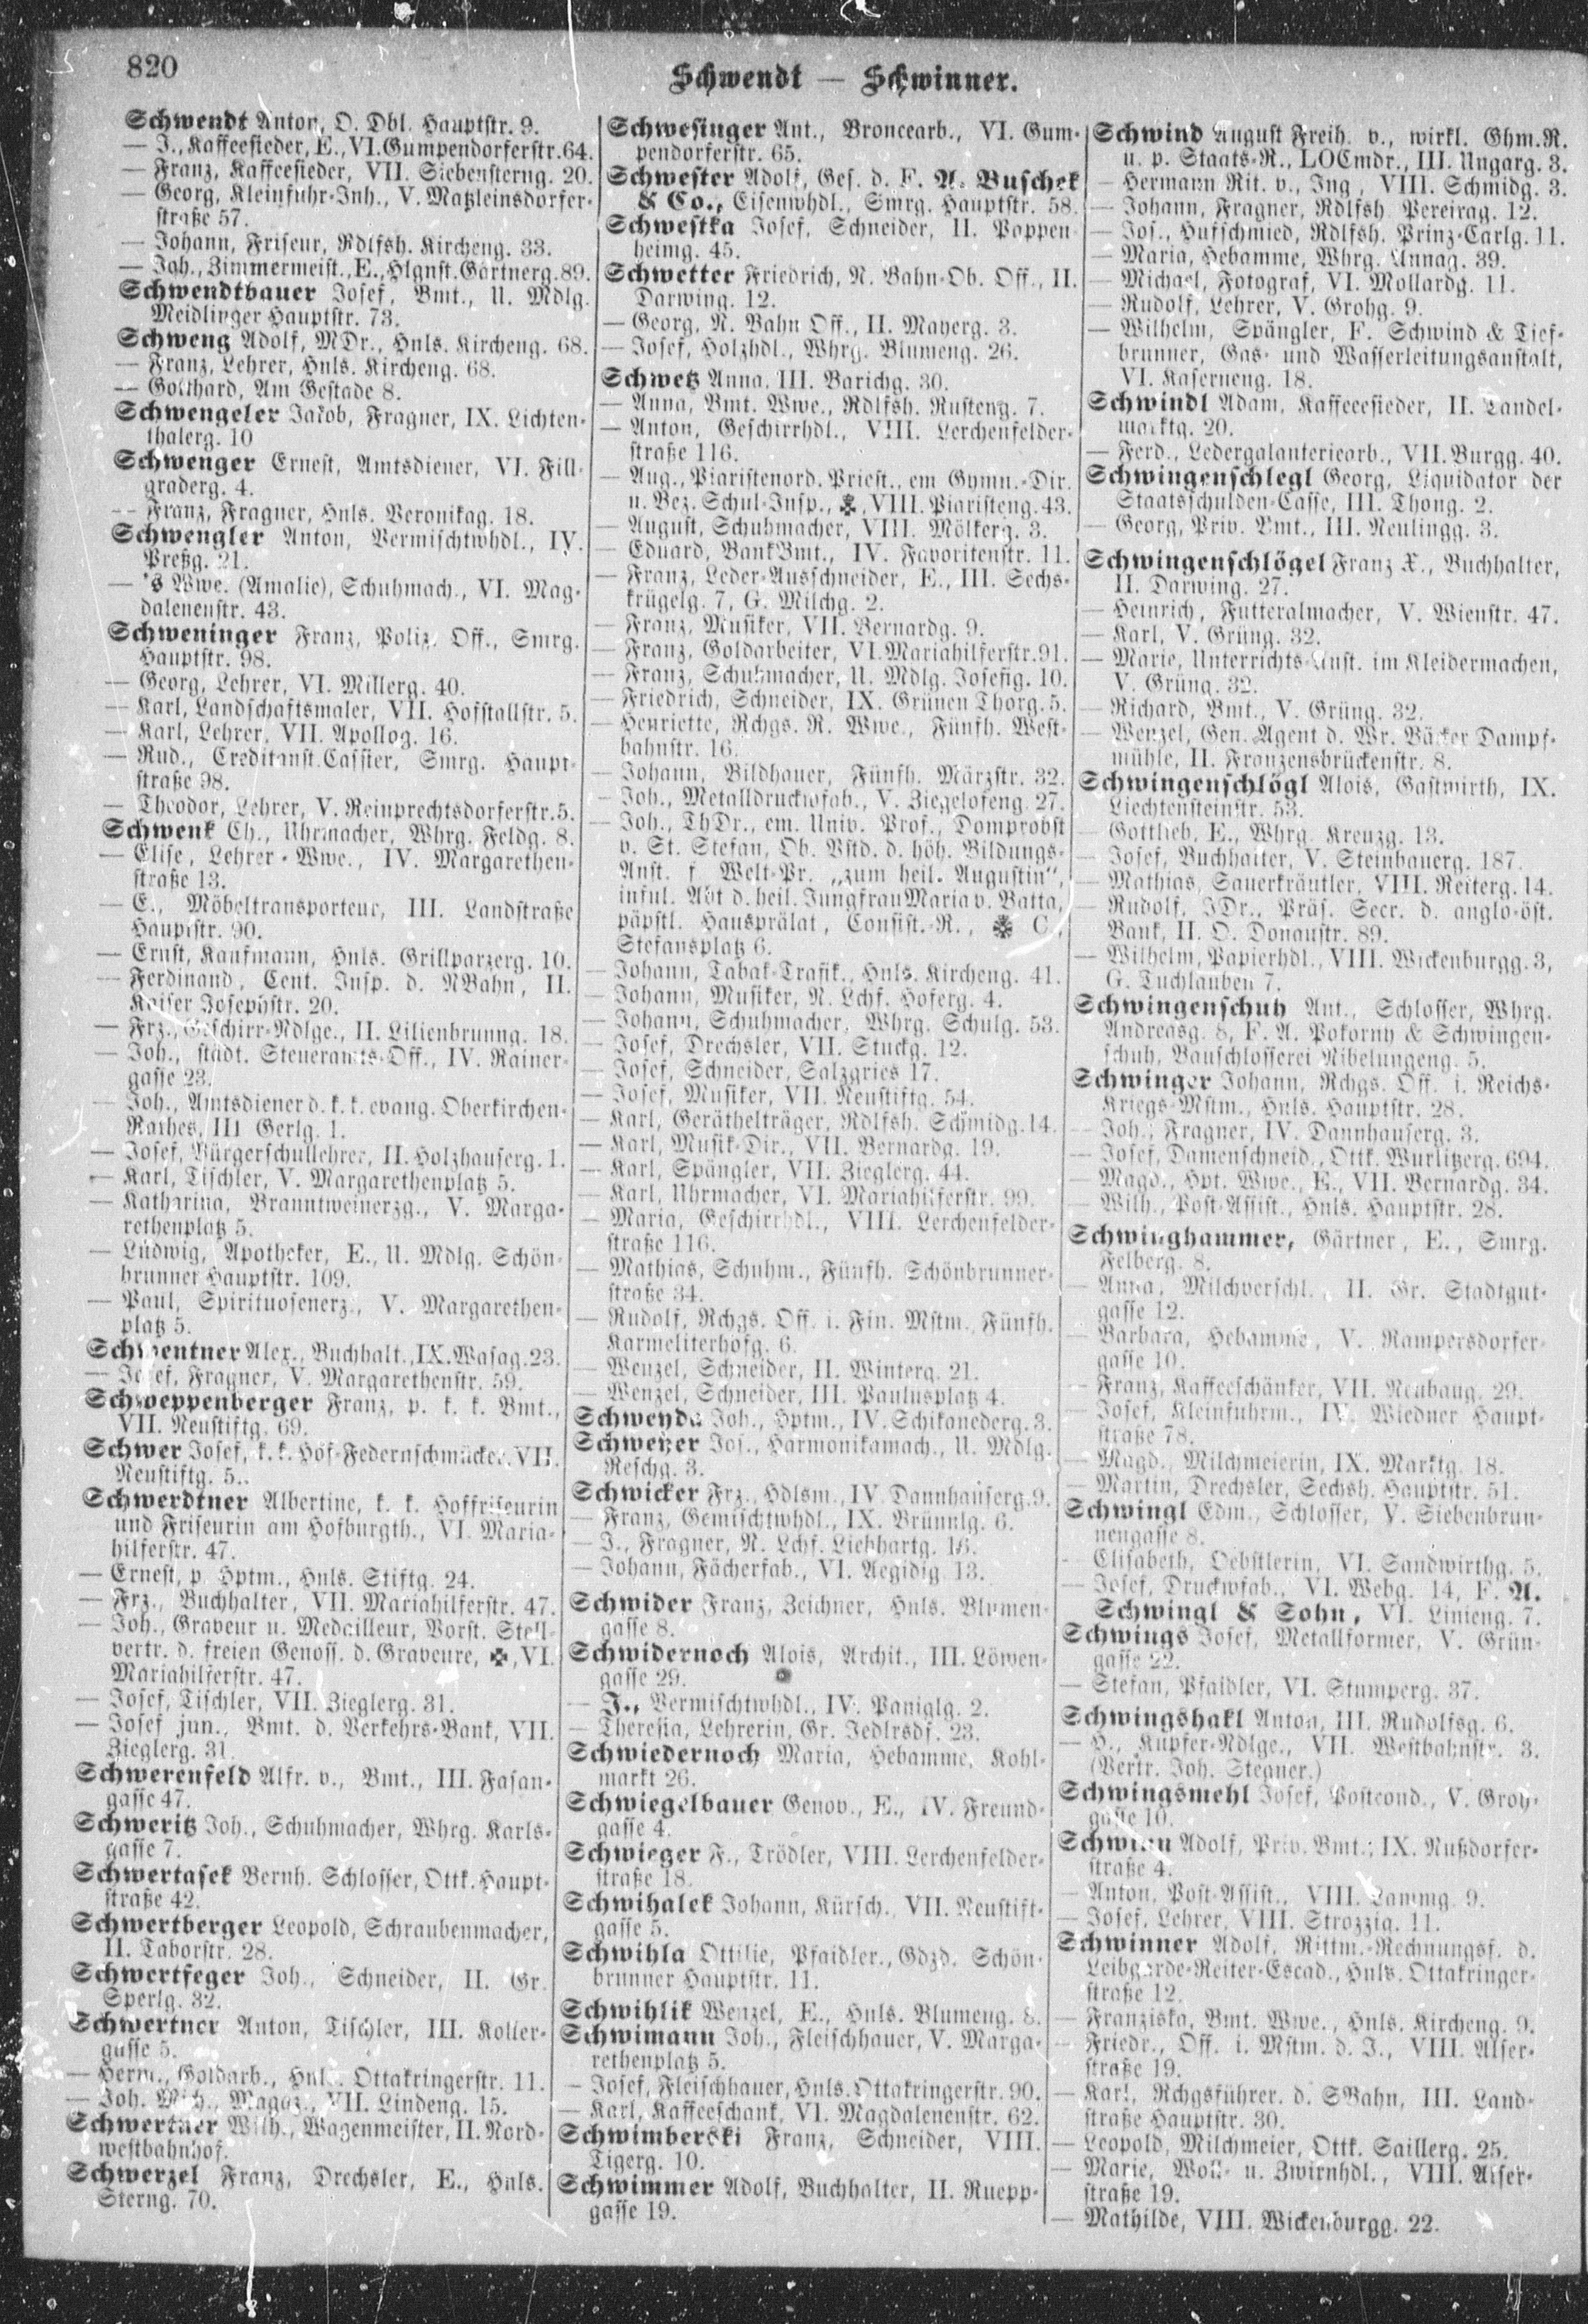 820
Schwendt — Schwinner.
Schwendt Anton, O. Dbl. Hauptstr. 9.
— J., Kaffeesieder, E., VI. Gumpendorferstr. 64.
— Franz, Kaffeesieder, VII. Siebensterng. 20.
— Georg, Kleinfuhr-Inh., V. Matzleinsdorfer-
straße 57.
— Johann, Friseur, Rdlfsh. Kircheng. 33.
— Joh., Zimmermeist., E., Hlgnst. Gärtnerg. 89.
Schwendtbauer Josef, Bmt., U. Mdlg.
Meidlinger Hauptstr. 73.
Schweng Adolf, MDr., Hnls. Kircheng. 68.
— Franz, Lehrer, Hnls. Kircheng. 68.
— Gotthard, Am Gestade 8.
Schwengeler Jakob, Fragner, IX. Lichten-
thalerg. 10
Schwenger Ernest, Amtsdiener, VI. Fill-
graderg. 4.
— Franz, Fragner, Hnls. Veronikag. 18.
Schwengler Anton, Vermischtwhdl., IV.
Preßg. 21.
— 's Wwe. (Amalie), Schuhmach., VI. Mag-
dalenenstr. 43.
Schweninger Franz, Poliz. Off., Smrg.
Hauptstr. 98.
— Georg, Lehrer, VI. Millerg. 40.
— Karl, Landschaftsmaler, VII. Hofstallstr. 5.
— Karl, Lehrer, VII. Apollog. 16.
— Rud., Creditanst. Cassier, Smrg. Haupt-
straße 98.
— Theodor, Lehrer, V. Reinprechtsdorferstr. 5.
Schwenk Ch., Uhrmacher, Whrg. Feldg. 8.
— Elise, Lehrer-Wwe., IV. Margarethen-
straße 13.
— E., Möbeltransporteur, III. Landstraße
Hauptstr. 90.
— Ernst, Kaufmann, Hnls. Grillparzerg. 10.
— Ferdinand, Cent. Insp. d. NBahn, II.
Kaiser Josephstr. 20.
— Frz., Geschirr-Ndlge., II. Lilienbrunng. 18.
— Joh., städt. Steueramts-Off., IV. Rainer-
gasse 23.
— Joh., Amtsdiener d. k. k. evang. Oberkirchen-
Rathes, III Gerlg. 1.
— Josef, Bürgerschullehrer, II. Holzhauserg. 1.
— Karl, Tischler, V. Margarethenplatz 5.
— Katharina, Branntweinerzg., V. Marga-
rethenplatz 5.
— Ludwig, Apotheker, E., U. Mdlg. Schön-
brunner Hauptstr. 109.
— Paul, Spirituosenerz., V. Margarethen-
platz 5.
Schwentner Alex., Buchhalt., IX. Wasag. 23.
— Josef, Fragner, V. Margarethenstr. 59.
Schweppenberger Franz, p. k. k. Bmt.,
VII. Neustiftg. 69.
Schwer Josef, k. k. Hof-Federnschmücker, VII.
Neustiftg. 5.
Schwerdtner Albertine, k. k. Hoffriseurin
und Friseurin am Hofburgth., VI. Maria-
hilferstr. 47.
— Ernest, p. Hptm., Hnls. Stiftg. 24.
— Frz., Buchhalter, VII. Mariahilferstr. 47.
— Joh., Graveur u. Medailleur, Vorst. Stell-
vertr. d. freien Genoss. d. Graveure, ✠, VI.
Mariahilferstr. 47.
— Josef, Tischler, VII. Zieglerg. 31.
— Josef jun., Bmt. d. Verkehrs-Bank, VII.
Zieglerg. 31.
Schwerenfeld Alfr. v., Bmt., III. Fasan-
gasse 47.
Schweritz Joh., Schuhmacher, Whrg. Karls-
gasse 7.
Schwertasek Bernh. Schlosser, Ottk. Haupt-
straße 42.
Schwertberger Leopold, Schraubenmacher,
II. Taborstr. 28.
Schwertfeger Joh., Schneider, II. Gr.
Sperlg. 32.
Schwertner Anton, Tischler, III. Koller-
gasse 5.
— Herm., Goldarb., Hnls. Ottakringerstr. 11.
— Joh. Magaz., VII. Lindeng. 15.
Schwertner Wilh., Wagenmeister, II. Nord-
westbahnhof.
Schwerzel Franz, Drechsler, E., Hnls.
Sterng. 70.
Schwesinger Ant., Broncearb., VI. Gum-
pendorferstr. 65.
Schwester Adolf, Ges. d. F. A. Buschek
& Co., Eisenwhdl., Smrg. Hauptstr. 58.
Schwestka Josef, Schneider, II. Poppen-
heimg. 45.
Schwetter Friedrich, N. Bahn-Ob. Off., II.
Darwing. 12.
— Georg, N. Bahn Off., II. Mayerg. 3.
— Josef, Holzhdl., Whrg. Blumeng. 26.
Schwetz Anna, III. Barichg. 30.
— Anna, Bmt. Wwe., Rdlfsh. Rusteng. 7.
— Anton, Geschirrhdl., VIII. Lerchenfelder-
straße 116.
— Aug., Piaristenord. Priest., em Gymn.-Dir.
u. Bez. Schul-Insp., ✠, VIII. Piaristeng. 43.
— August, Schuhmacher, VIII. Mölkerg. 3.
— Eduard, BankBmt., IV. Favoritenstr. 11.
— Franz, Leder-Ausschneider, E., III. Sechs-
krügelg. 7, G. Milchg. 2.
— Franz, Musiker, VII. Bernardg. 9.
— Franz, Goldarbeiter, VI. Mariahilferstr. 91.
— Franz, Schuhmacher, U. Mdlg. Josefig. 10.
— Friedrich, Schneider, IX. Grünen Thorg. 5.
— Henriette, Rchgs. R. Wwe., Fünfh. West-
bahnstr. 16.
— Johann, Bildhauer, Fünfh. Märzstr. 32.
— Joh., Metalldruckwfab., V. Ziegelofeng. 27.
— Joh., ThDr., em. Univ. Prof., Domprobst
v. St. Stefan, Ob. Vstd. d. höh. Bildungs-
Anst. f Welt-Pr. „zum heil. Augustin“,
inful. Abt d. heil. Jungfrau Maria v. Batta,
päpstl. Hausprälat, Consist.-R., ✠ C.,
Stefansplatz 6.
— Johann, Tabak-Trafik., Hnls. Kircheng. 41.
— Johann, Musiker, N. Lchf. Hoferg. 4.
— Johann, Schuhmacher, Whrg. Schulg. 53.
— Josef, Drechsler, VII. Stuckg. 12.
— Josef, Schneider, Salzgries 17.
— Josef, Musiker, VII. Neustiftg. 54.
— Karl, Geräthelträger, Rdlfsh. Schmidg. 14.
— Karl, Musik-Dir., VII. Bernardg. 19.
— Karl, Spängler, VII. Zieglerg. 44.
— Karl, Uhrmacher, VI. Mariahilferstr. 99.
— Maria, Geschirrhdl., VIII. Lerchenfelder-
straße 116.
— Mathias, Schuhm., Fünfh. Schönbrunner-
straße 34.
— Rudolf, Rchgs. Off. i. Fin. Mstm., Fünfh.
Karmeliterhofg. 6.
— Wenzel, Schneider, II. Winterg. 21.
— Wenzel, Schneider, III. Paulusplatz 4.
Schweyda Joh., Hptm., IV. Schikanederg. 3.
Schweyer Jos., Harmonikamach., U. Mdlg.
Reschg. 3.
Schwicker Frz., Hdlsm., IV. Dannhauserg. 9.
— Franz, Gemischtwhdl., IX. Brünnlg. 6.
— J., Fragner, N. Lchf. Liebhartg. 16.
— Johann, Fächerfab., VI. Aegidig. 13.
Schwider Franz, Zeichner, Hnls. Blumen-
gasse 8.
Schwidernoch Alois, Archit., III. Löwen-
gasse 29.
— J., Vermischtwhdl., IV. Paniglg. 2.
— Theresia, Lehrerin, Gr. Jedlrsdf. 23.
Schwiedernoch Maria, Hebamme, Kohl-
markt 26.
Schwiegelbauer Genov., E., IV. Freund-
gasse 4.
Schwieger F., Trödler, VIII. Lerchenfelder-
straße 18.
Schwihalek Johann, Kürsch., VII. Neustift-
gasse 5.
Schwihla Ottilie, Pfaidler., Gdzd. Schön-
brunner Hauptstr. 11.
Schwihlik Wenzel, E., Hnls. Blumeng. 8.
Schwimann Joh., Fleischhauer, V. Marga-
rethenplatz 5.
— Josef, Fleischhauer, Hnls. Ottakringerstr. 90.
— Karl, Kaffeeschank, VI. Magdalenenstr. 62.
Schwimberski Franz, Schneider, VIII.
Tigerg. 10.
Schwimmer Adolf, Buchhalter, II. Ruepp-
gasse 19.
Schwind August Freih. v., wirkl. Ghm. R.
u. p. Staats-R., LOCmdr., III. Ungarg. 3.
— Hermann Rit. v., Ing., VIII. Schmidg. 3.
— Johann, Fragner, Rdlfsh. Pereirag. 12.
— Jos., Hufschmied, Rdlfsh. Prinz-Carlg. 11.
— Maria, Hebamme, Whrg. Annag. 39.
— Michael, Fotograf, VI. Mollardg. 11.
— Rudolf, Lehrer, V. Grohg. 9.
— Wilhelm, Spängler, F. Schwind & Tief-
brunner, Gas- und Wasserleitungsanstalt,
VI. Kaserneng. 18.
Schwindl Adam, Kaffeeesieder, II. Tandel-
marktg. 20.
— Ferd., Ledergalanteriearb., VII. Burgg. 40.
Schwingenschlegl Georg, Liquidator der
Staatsschulden-Casse, III. Thong. 2.
— Georg, Priv. Bmt., III. Neulingg. 3.
Schwingenschlögel Franz X., Buchhalter,
II. Darwing. 27.
— Heinrich, Futteralmacher, V. Wienstr. 47.
— Karl, V. Grüng. 32.
— Marie, Unterrichts-Anst. im Kleidermachen,
V. Grüng. 32.
— Richard, Bmt., V. Grüng. 32.
— Wenzel, Gen. Agent d. Wr. Bäcker Dampf-
mühle, II. Franzensbrückenstr. 8.
Schwingenschlögl Alois, Gastwirth, IX.
Liechtensteinstr. 53.
— Gottlieb, E., Whrg. Kreuzg. 13.
— Josef, Buchhalter, V. Steinbauerg. 187.
— Mathias, Sauerkräutler, VIII. Reiterg. 14.
— Rudolf, JDr., Präs. Secr. d. anglo-öst.
Bank, II. O. Donaustr. 89.
— Wilhelm, Papierhdl., VIII. Wickenburgg. 3,
G. Tuchlauben 7.
Schwingenschuh Ant., Schlosser, Whrg.
Andreasg. 8, F. A. Pokorny & Schwingen-
schuh, Bauschlosserei Nibelungeng. 5.
Schwinger Johann, Rchgs. Off. i. Reichs-
Kriegs-Mstm., Hnls. Hauptstr. 28.
— Joh., Fragner, IV. Dannhauserg. 3.
— Josef, Damenschneid., Ottk. Wurlitzerg. 694.
— Magd., Hpt. Wwe., E., VII. Bernardg. 34.
— Wilh., Post-Assist., Hnls. Hauptstr. 28.
Schwinghammer, Gärtner, E., Smrg.
Felberg. 8.
— Anna, Milchverschl., II. Gr. Stadtgut-
gasse 12.
— Barbara, Hebamme, V. Rampersdorfer-
gasse 10.
— Franz, Kaffeeschänker, VII. Neubaug. 29.
— Josef, Kleinfuhrm., IV. Wiedner Haupt-
straße 78.
— Magd., Milchmeierin, IX. Marktg. 18.
— Martin, Drechsler, Sechsh. Hauptstr. 51.
Schwingl Edm., Schlosser, V. Siebenbrun-
nengasse 8.
— Elisabeth, Oebstlerin, VI. Sandwirthg. 5.
— Josef, Druckwfab., VI. Webg. 14, F. A.
Schwingl & Sohn, VI. Linieng. 7.
Schwings Josef, Metallformer, V. Grün-
gasse 22.
— Stefan, Pfaidler, VI. Stumperg. 37.
Schwingshakl Anton, III. Rudolfsg. 6.
— H., Kupfer-Ndlge., VII. Westbahnstr. 3.
(Vertr. Joh. Stegner.)
Schwingsmehl Josef, Postcond., V. Groh-
gasse 10.
Schwinn Adolf, Priv. Bmt., IX. Nußdorfer-
straße 4.
— Anton, Post-Assist., VIII. Lammg. 9.
— Josef, Lehrer, VIII. Strozzig. 11.
Schwinner Adolf, Rittm.-Rechnungsf. d.
Leibgarde-Reiter-Escad., Hnls. Ottakringer-
straße 12.
— Franziska, Bmt. Wwe., Hnls. Kircheng. 9.
— Friedr., Off. i. Mstm. d. J., VIII. Alser-
straße 19.
— Karl, Rchgsführer. d. SBahn, III. Land-
straße Hauptstr. 30.
— Leopold, Milchmeier, Ottk. Saillerg. 25.
— Marie, Woll- u. Zwirnhdl., VIII. Alser-
straße 19.
— Mathilde, VIII. Wickenburgg. 22.